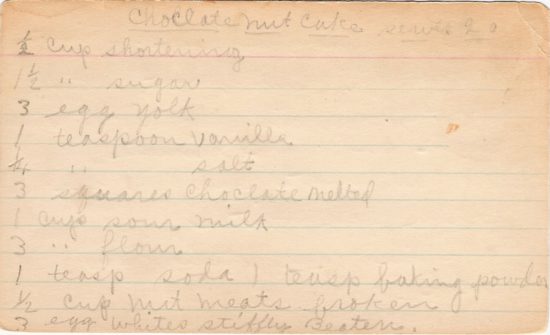 Choclate nut Cake serves 20
½ cup shortening
1½ " sugar
3 egg yolk
1 teaspoon vanilla
¼ " salt
3 squares choclate melted
1 cups sour milk
3 " flour
1 teasp soda 1 teasp baking powder
½ cup nut meats broken
3 egg whites stiffly Beaten.